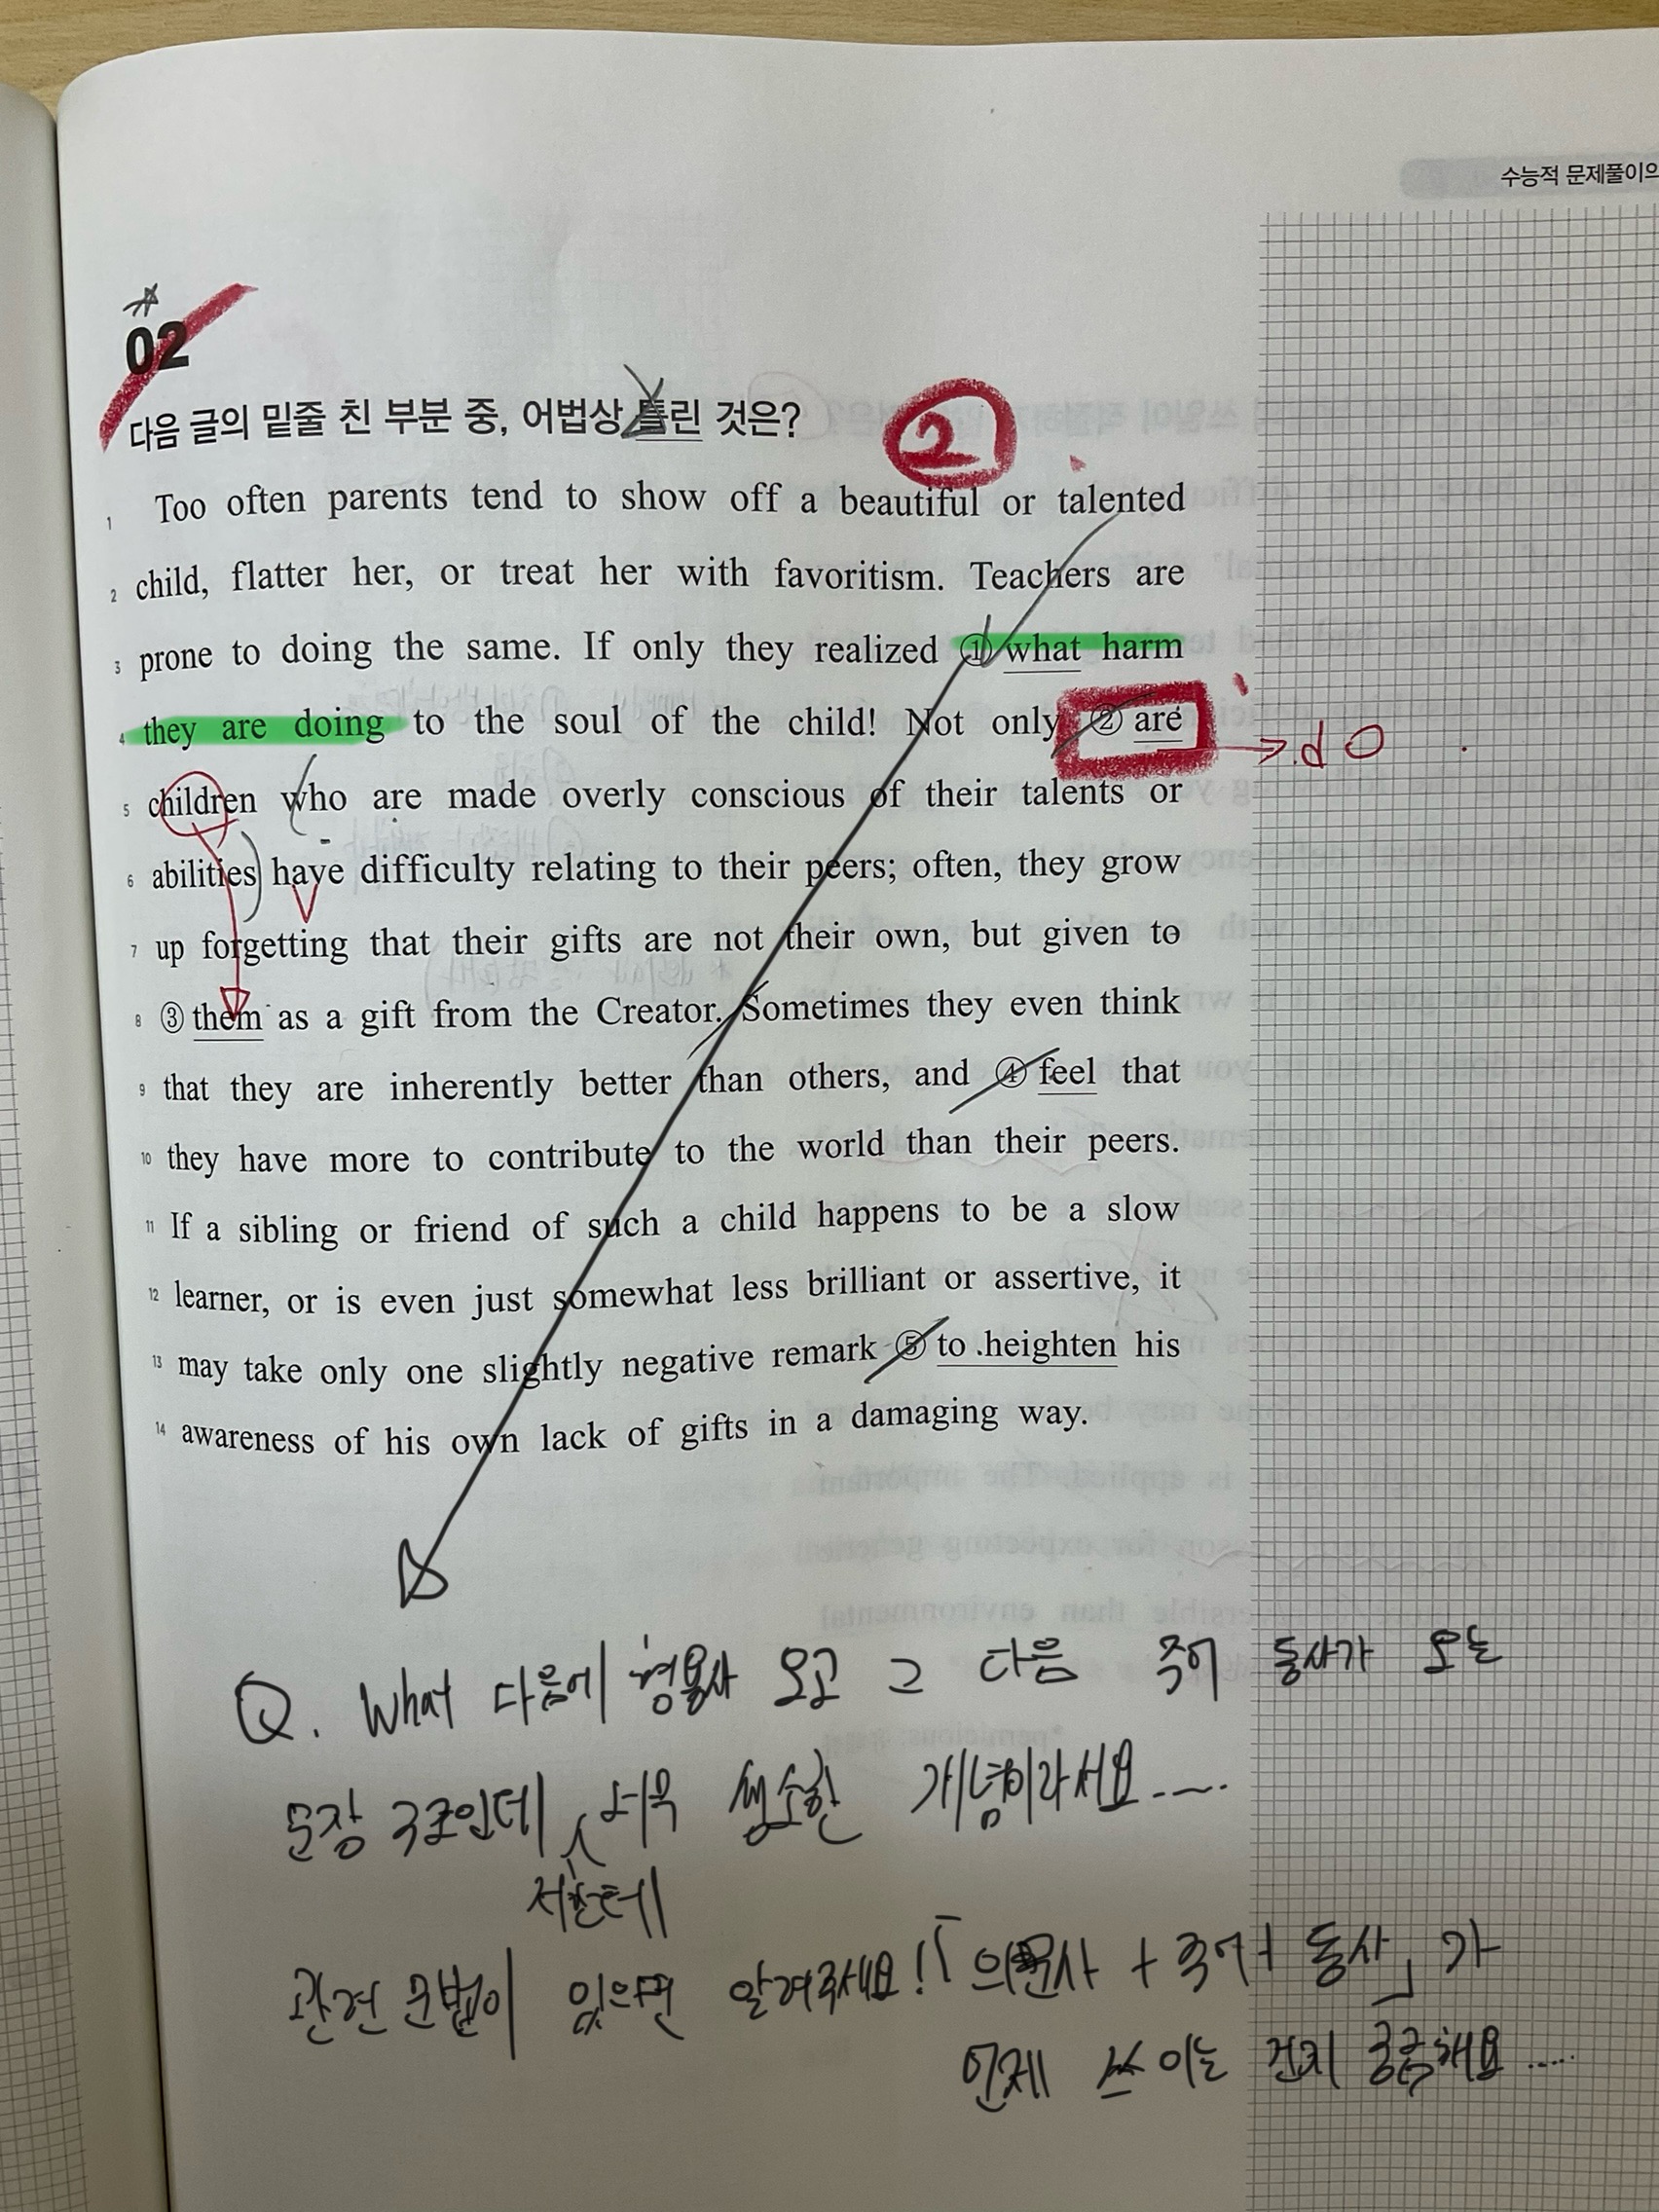 수능적 문제풀이의
02
다음 글의 밑줄 친 부분 중, 어법상 틀린 것은?
2
1 Too often parents tend to show off a beautiful or talented
2 child, flatter her, or treat her with favoritism. Teachers are
3 prone to doing the same. If only they realized ① what harm
4 they are doing to the soul of the child! Not only ② are
→ do
5 children who are made overly conscious of their talents or
6 abilities have difficulty relating to their peers; often, they grow
7 up forgetting that their gifts are not their own, but given to
8 ③ them as a gift from the Creator. Sometimes they even think
9 that they are inherently better than others, and ④ feel that
10 they have more to contribute to the world than their peers.
11 If a sibling or friend of such a child happens to be a slow
12 learner, or is even just somewhat less brilliant or assertive, it
13 may take only one slightly negative remark ⑤ to heighten his
14 awareness of his own lack of gifts in a damaging way.
Q. What 다음에 형용사 오고 그 다음 주어 동사가 오는
문장 구조인데 너무 생소한 개념이라서요....
저한테
관련 문법이 있으면 알려주세요! 「의문사 + 주어 + 동사」가
언제 쓰이는 건지 궁금해요.....